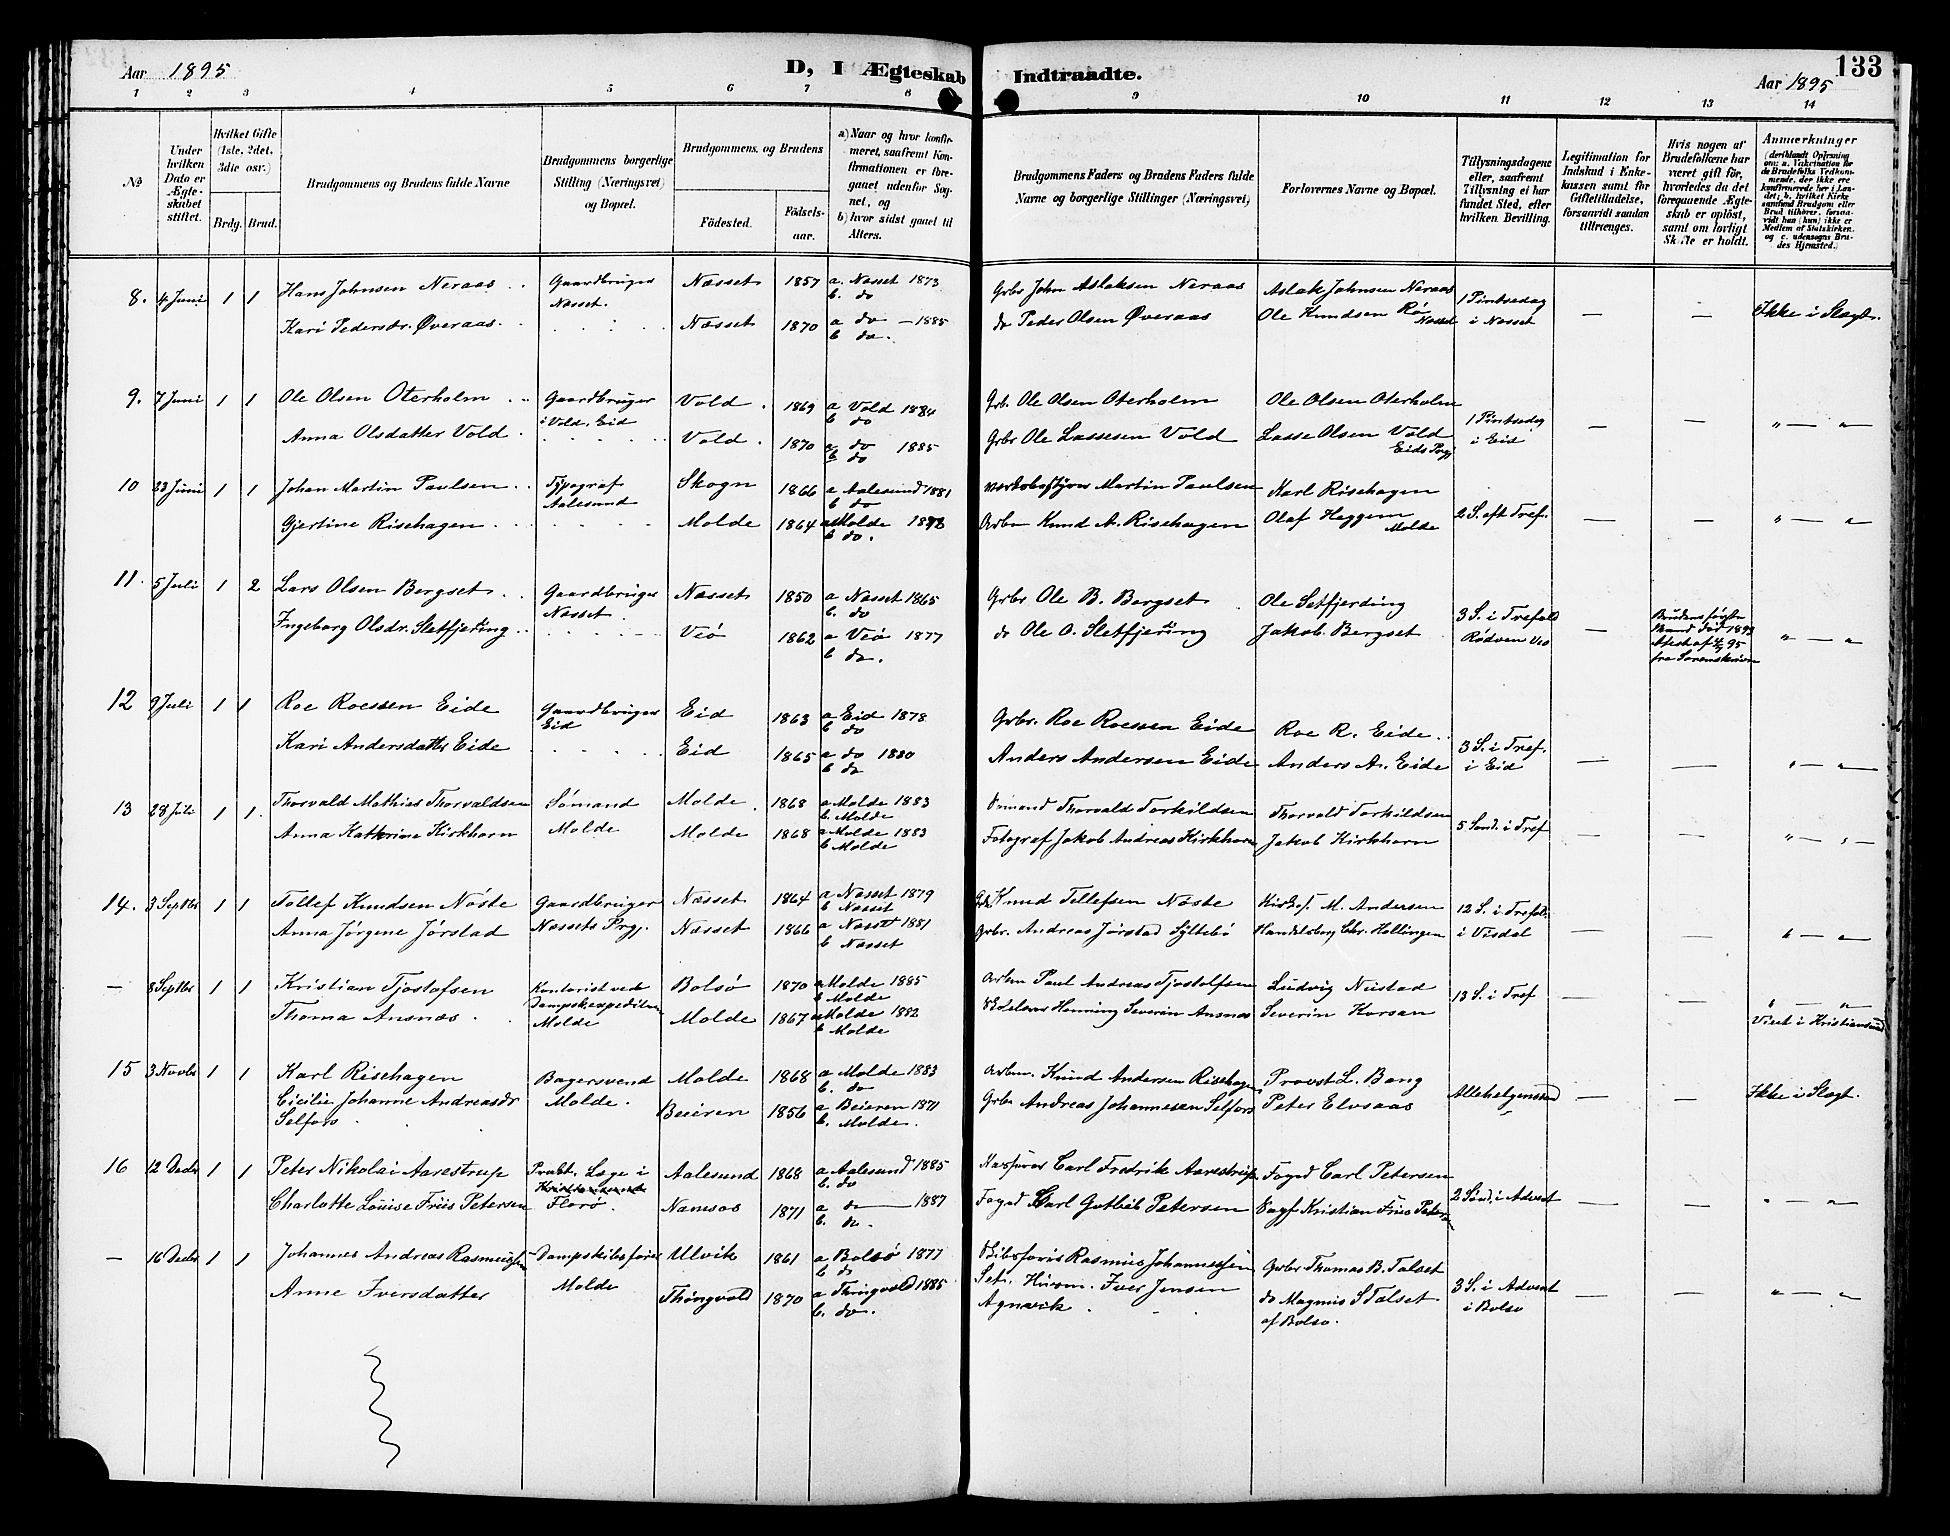 Aar 1895
D, I Ægteskab Indtraadte.
133
Aar 1895
1 2 3 4 5 6 7 8 9 10 11 12 13 14
No
Under hvilken Dato er Ægteskabet stiftet.
Hvilket Gifte (1ste, 2det, 3die osv.)
Brdg. Brud.
Brudgommens og Brudens fulde Navne
Brudgommens borgerlige Stilling (Næringsvei) og Bopæl.
Brudgommens og Brudens
Födested. Födsels-aar.
a) Naar og hvor konfirmeret, saafremt Konfirmationen er foregaaet udenfor Sognet, og
b) hvor sidst gaaet til Alters.
Brudgommens Faders og Brudens Faders fulde Navne og borgerlige Stillinger (Næringsvei)
Forlovernes Navne og Bopæl.
Tillysningsdagene eller, saafremt Tillysning ei har fundet Sted, efter hvilken Bevilling.
Legitimation for Indskud i Enkekassen samt for Giftetilladelse, forsaavidt saadan tiltrænges.
Hvis nogen af Brudefolkene har været gift för, hvorledes da det foregaaende Ægteskab er oplöst, samt om lovligt Skifte er holdt.
Anmerkninger
8. 4 Juni 1 1 Hans Johnsen Neraas Gaardbruger Næsset 1857 a. Næsset 1873 Grbr John Aslaksen Neraas Aslak Johnsen Neraas 1 Pintsedag — — Ikke i Slægt.
Næsset. b. do
Kari Pedersdr. Øveraas Næsset 1870 a do — 1885 do Peder Olsen Øveraas Ole Knudsen Rø Næsset i Næsset
b do.
9. 7 Juni 1 1 Ole Olsen Oterholm Gaardbruger Vold 1869 a Vold 1884 Grb. Ole Olsen Oterholm Ole Olsen Oterholm 1 Pintsedag — — „ — „
i Vold, Eid b do
Anna Olsdatter Vold Vold 1870 a do 1885 Grbr Ole Lassesen Vold Lasse Olsen Vold i Eid
b do Eids Prgj
10 23 Juni 1 1 Johan Martin Paulsen Typograf Skogn 1866 a Aalesund 1881 Martin Paulsen Karl Risehagen 2 S. eft Tref. — — „ — „
Aalesund b do
Gjertine Risehagen Molde 1864 a Molde Arbm Knud A. Risehagen Olaf Heggem Molde
b do.
11. 5 Juli 1 2 Lars Olsen Bergset Gaardbruger Næsset 1850 a Næsset 1865 Grbr Ole B. Bergset Ole Setfjerding 3 S. i Trefold —
Næsset b. do
Ingeborg Olsdr. Sletfjerding Veø 1862 a Veø 1877 do Ole O. Sletfjerding Jakob Bergset Rødven Veø „ — „
b do.
12 9 Juli 1 1 Roe Roessen Eide Gaardbruger Eid 1863 a Eid 1878 Grbr. Roe Roessen Eide Roe R. Eide 3 S. i Tref. — — „ — „
Eid b do
Kari Andersdatter Eide Eid 1865 a do 1880 Anders Andersen Eide Anders A. Eide i Eid
b do
13 28 Juli 1 1. Thorvald Mathias Thorvaldsen Sømand Molde 1868 a Molde 1883 Thorvald Torkildsen Thorvald Torkildsen 5 Sønd. i Tref — — „ — „
b. Molde
Anna Kathrine Kirkhorn Molde Molde 1868 a Molde 1883 Fotograf Jakob Andreas Kirkhorn Jakob Kirkhorn
b Molde
14. 3 Septbr 1 1 Tollef Knudsen Nøste Gaardbruger Næsset 1864 a Næsset 1879 Knud Tollefsen Nøste M. Andersen 12 S. i Trefold. — — „ — „
b Næsset
Anna Jørgene Jørstad Næssets Prgj. Næsset 1866 a Næsset 1881 Grbr. Andreas Jørstad Syltebø Handelsbog Chr. Hellingen i Visdal
b Næsset
— 8 Septbr 1 1 Kristian Tjostofsen Kontorist ved Bolsø 1870 a Molde 1885 Arbm Paul Andreas Tjostolfsen Ludvig Neistad 13 S. i Tref — — „ — „
b Molde
Thoma Ansnæs Dampskexpeditionen Molde Molde 1867 a Molde 1882 Henning Severin Ansnæs Severin Korsan Viet i Kristiansund
b Molde
15 3 Novbr 1 1 Karl Risehagen Bagersvend Molde 1868 a Molde 1883 Arbm. Knud Andersen Risehagen Provst L. Bang Allehelgenssønd — — Ikke i Slægt.
Molde. b. do
Cicilie Johanne Andreasdr Beieren 1856 a Beieren 1871 Grbr Andreas Johannesen Selfors Peter Elvsaas
Selfors b. Molde
16 12 Decbr 1 1 Peter Nikolai Aarestrup Prakt. Læge i Aalesund 1868 a Aalesund 1885 Carl Fredrik Aarestrup Foged Carl Petersen 2 Sønd. i Advent — — „ — „
b. do
Charlotte Louise Friis Petersen Florø Namsos 1871 a do — 1887 Foged Carl Gotlieb Petersen Kristian Friis Petersen
b. do.
— 16 Decbr 1 1 Johannes Andreas Rasmussen Dampskibsfører Ulvik 1861 a Bolsø 1877 Skibsfører Rasmus Johannessen Grbr Thomas B. Talset 3 S. i Advent — — „ — „
b do
Anne Iversdatter Molde Thingvold 1870 a Thingvold 1885 Husm. Iver Jensen do Magnus S Talset i Bolsø
b. do. Agnavik af Bolsø.